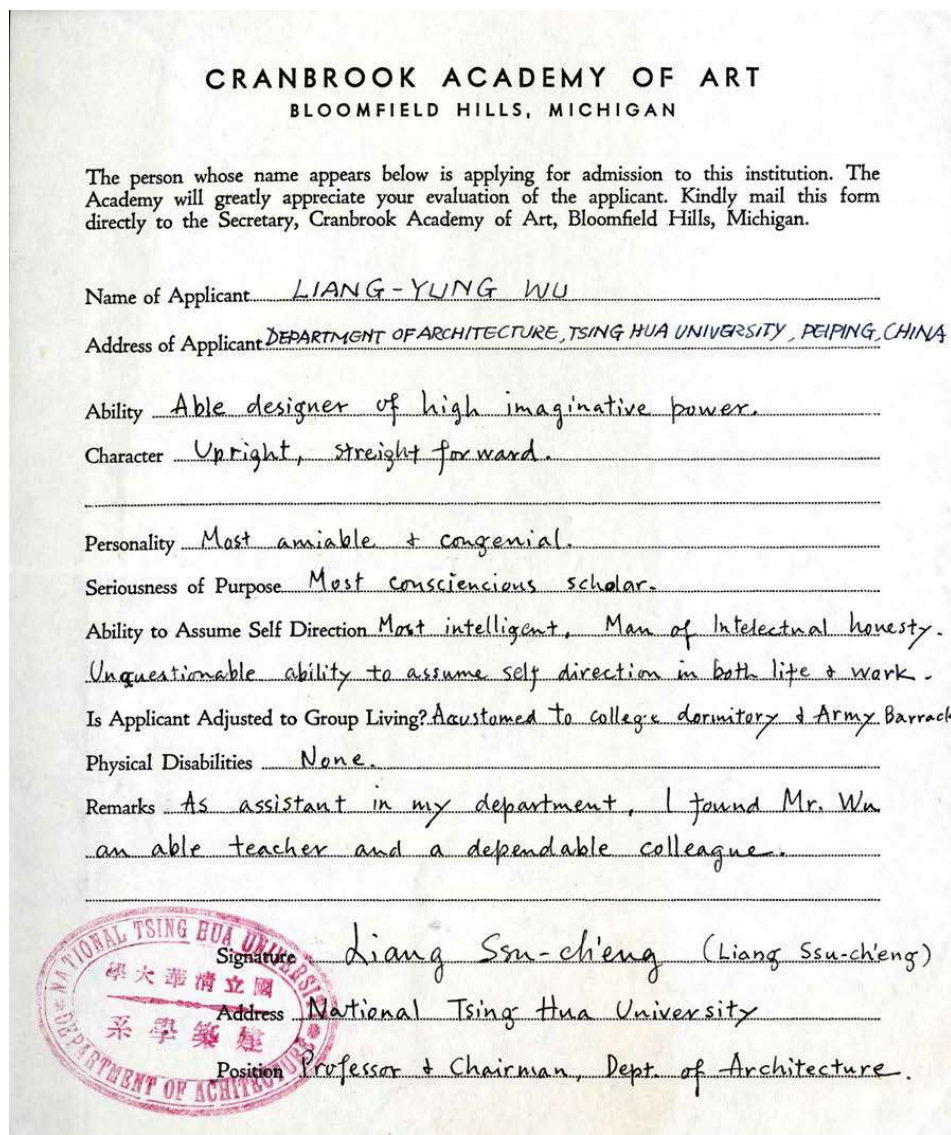 CRANBROOK ACADEMY OF ART
BLOOMFIELD HILLS, MICHIGAN
The person whose name appears below is applying for admission to this institution. The
Academy will greatly appreciate your evaluation of the applicant. Kindly mail this form
directly to the Secretary, Cranbrook Academy of Art, Bloomfield Hills, Michigan.
Name of Applicant LIANG-YUNG WU
Address of Applicant DEPARTMENT OF ARCHITECTURE, TSING HUA UNIVERSITY, PEIPING, CHINA
Ability Able designer of high imaginative power.
Character Upright, streight forward.
Personality Most amiable & congenial.
Seriousness of Purpose Most consciencious scholar.
Ability to Assume Self Direction Most intelligent, Man of Intelectual honesty.
Unquestionable ability to assume self direction in both life & work.
Is Applicant Adjusted to Group Living? Acustomed to college dormitory & Army Barrack
Physical Disabilities None.
Remarks As assistant in my department, I found Mr. Wu
an able teacher and a dependable colleague.
NATIONAL TSING HUA UNIVERSITY
Signature Liang Ssu-ch'eng (Liang Ssu-ch'eng)
學大華清立國
Address National Tsing Hua University
系學築建
Position Professor & Chairman, Dept. of Architecture.
DEPARTMENT OF ACHITECTURE